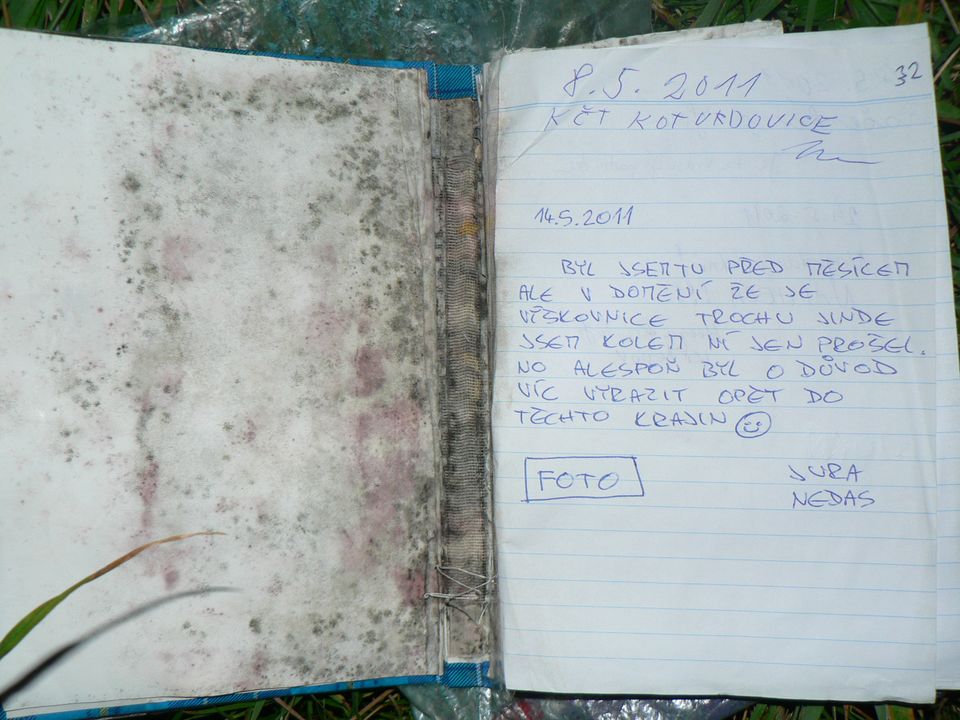 32
8.5. 2011
KČT KOTVRDOVICE
14.5.2011
BYL JSEM TU PŘED MĚSÍCEM
ALE V DOMĚNÍ ŽE JE
VÝŠKOVNICE TROCHU JINDE
JSEM KOLEM NÍ JEN PROŠEL.
NO ALESPOŇ BYL O DŮVOD
VÍC VYRAZIT OPĚT DO
TĚCHTO KRAJIN
FOTO
JURA
NEDAS